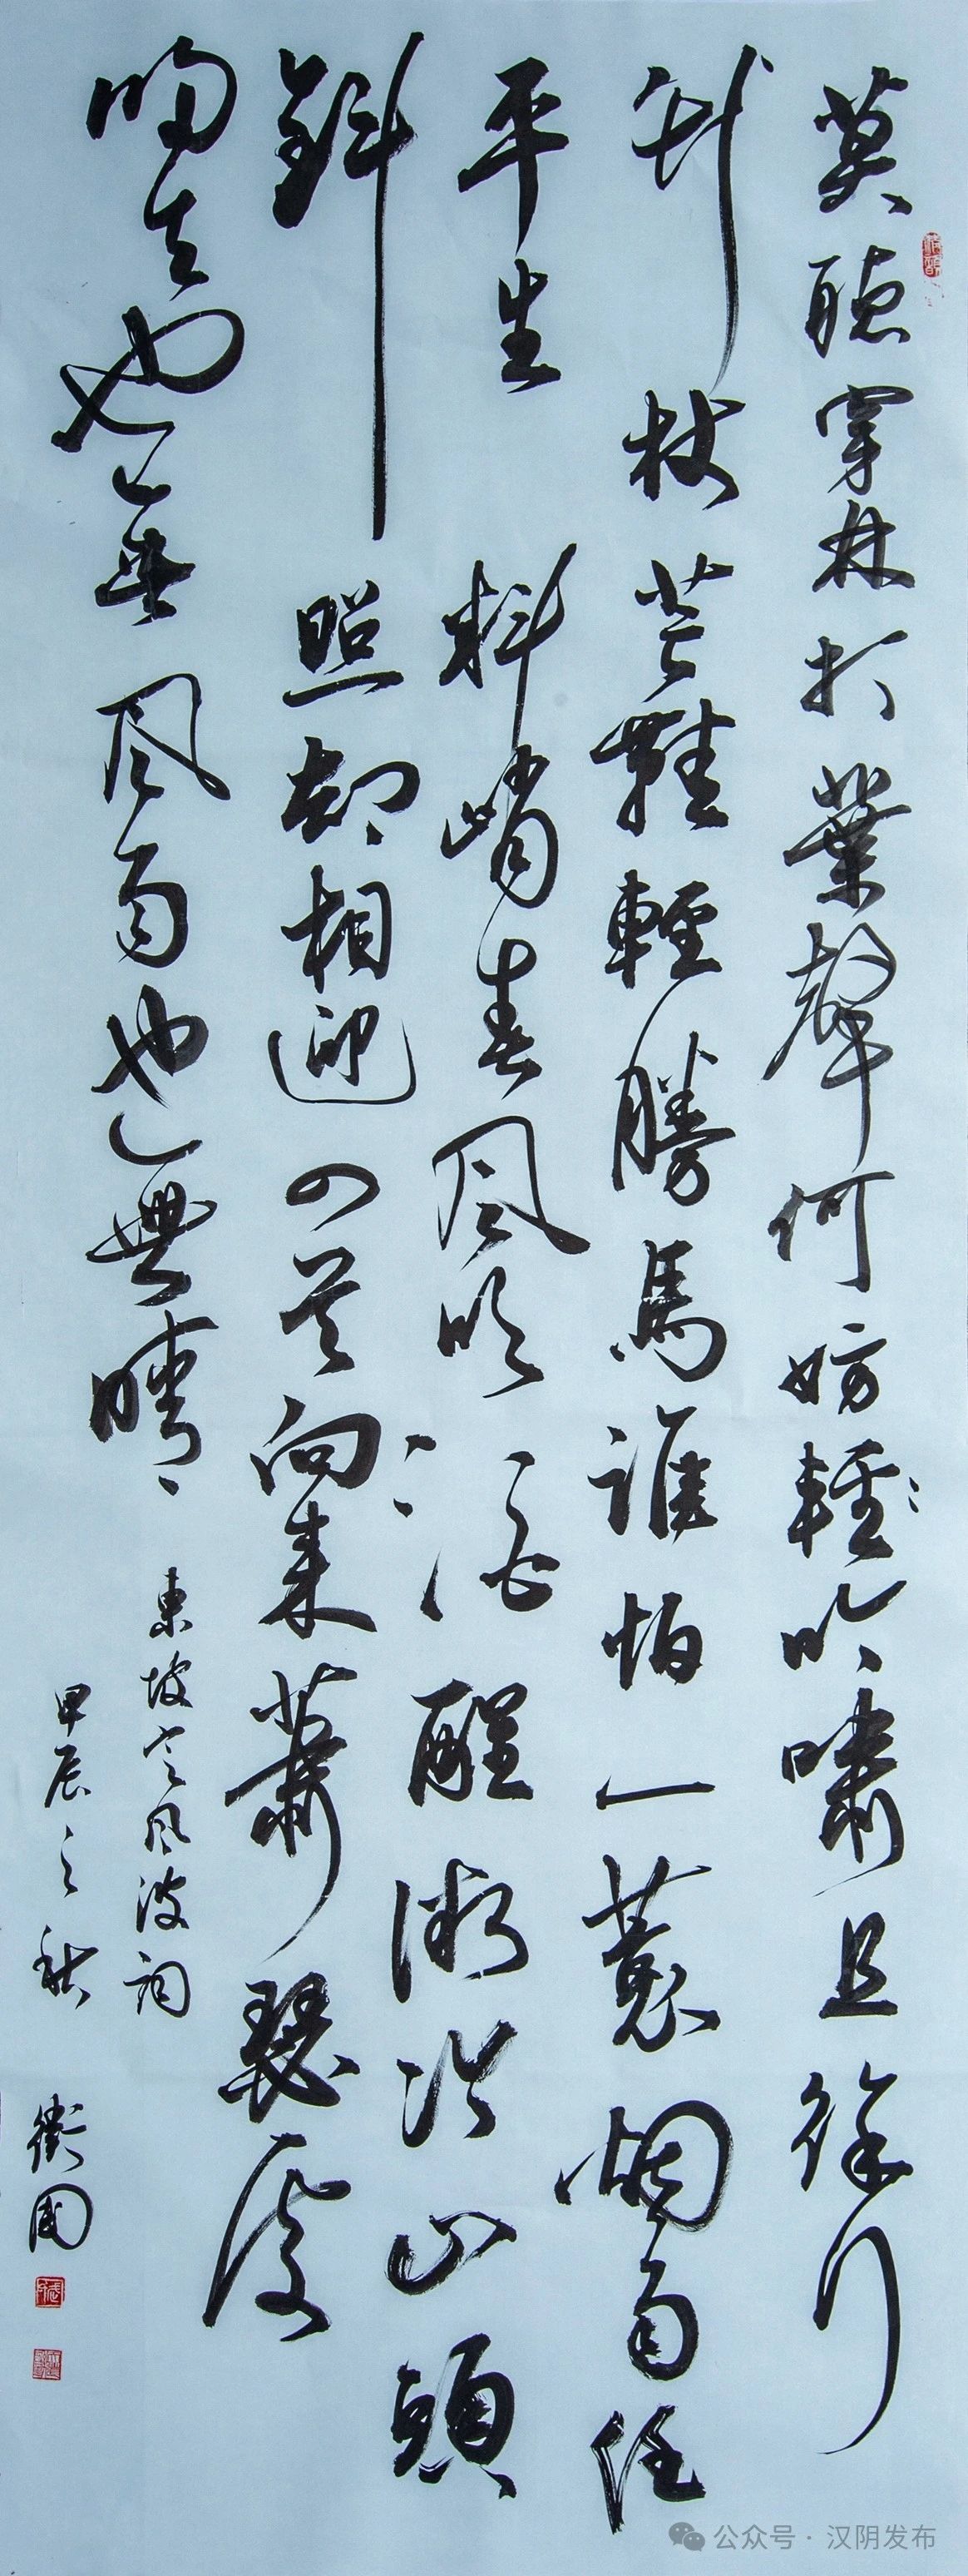 莫聽穿林打葉聲何妨輕吟嘯且徐行
竹杖芒鞋輕勝馬誰怕一蓑烟雨任
平生料峭春風吹酒醒微冷山頭
斜照却相迎回首向来蕭瑟處
歸去也無風雨也無晴
東坡定風波詞
甲辰之秋 衛國
公众号 · 汉阴发布